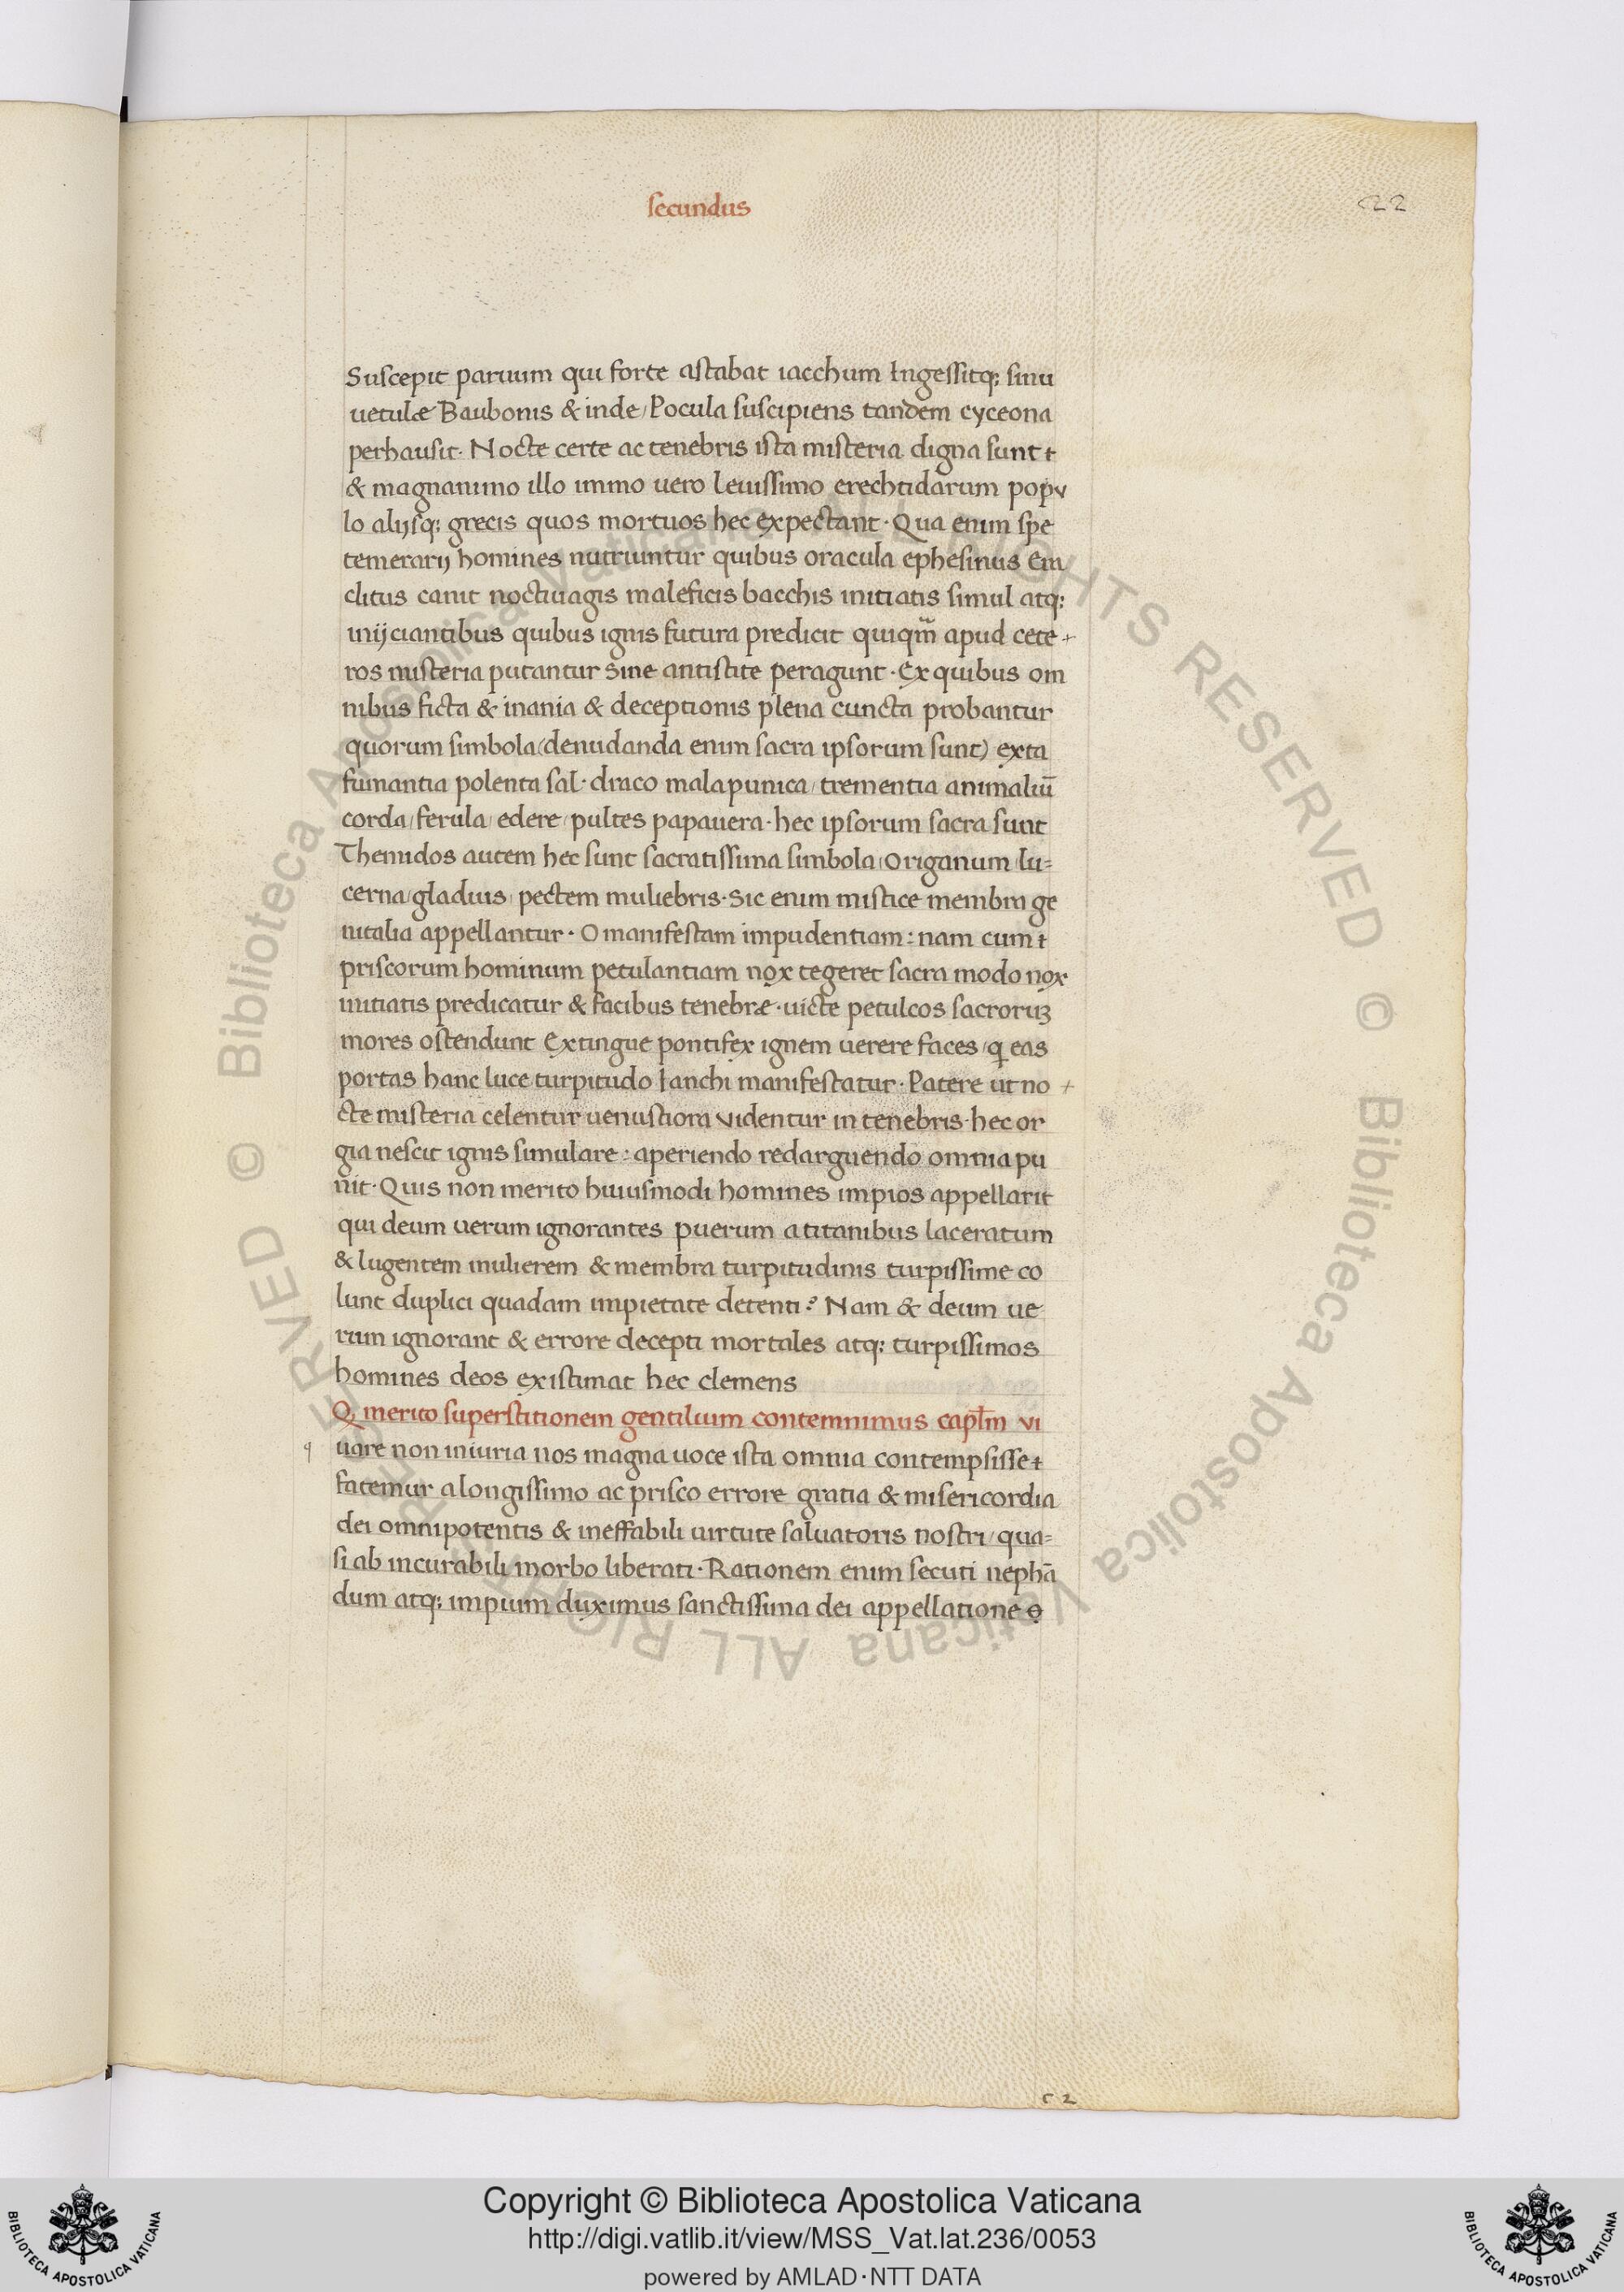 secundus
22
Suscepit paruum qui forte astabat iacchum Ingessitq; sinu
uetulæ Baubonis & inde/ Pocula suscipiens tandem cyceona
perhausit· Nocte certe ac tenebris ista misteria digna sunt
& magnanimo illo immo uero leuissimo erechtidarum popu
lo alijsq; grecis quos mortuos hec expectant· Qua enim spe
temerarij homines nutriuntur quibus oracula ephesinus Era
clitus canit noctiuagis maleficis bacchis initiatis simul atq;
inijciantibus quibus ignis futura predicit quiqm̄ apud cete
ros misteria putantur sine antistite peragunt· Ex quibus om
nibus ficta & inania & deceptionis plena cuncta probantur
quorum simbola (denudanda enim sacra ipsorum sunt) exta
fumantia polenta sal· draco mala punica/ trementia animaliū
corda/ ferula/ edere/ pultes papauera· hec ipsorum sacra sunt
Themidos autem hec sunt sacratissima simbola/ Origanum/ lu=
cerna/ gladius/ pectem muliebris· Sic enim mistice membra ge
nitalia appellantur· O manifestam impudentiam: nam cum
priscorum hominum petulantiam nox tegeret sacra modo nox
initiatis predicatur & facibus tenebræ· uicte petulcos sacroruꝫ
mores ostendunt Extingue pontifex ignem uerere faces/ qi eas
portas hanc luce turpitudo Ianchi manifestatur· Patere ut no
cte misteria celentur uenustiora videntur in tenebris· hec or
gia nescit ignis simulare: aperiendo redarguendo omnia pu
nit· Quis non merito huiusmodi homines impios appellarit
qui deum uerum ignorantes puerum a titanibus laceratum
& lugentem mulierem & membra turpitudinis turpissime co
lunt duplici quadam impietate detenti? Nam & deum ue
rum ignorant & errore decepti mortales atq; turpissimos
homines deos existimat hec clemens
Q merito superstitionem gentilium contemnimus capl̄m vi
q uare non iniuria nos magna uoce ista omnia contempsisse
fatemur a longissimo ac prisco errore gratia & misericordia
dei omnipotentis & ineffabili uirtute saluatoris nostri/ qua=
si ab incurabili morbo liberati· Rationem enim secuti nephā
dum atq; impium duximus sanctissima dei appellatione
c 2
Copyright © Biblioteca Apostolica Vaticana
http://digi.vatlib.it/view/MSS_Vat.lat.236/0053
powered by AMLAD·NTT DATA
BIBLIOTECA APOSTOLICA VATICANA
BIBLIOTECA APOSTOLICA VATICANA
© Biblioteca Apostolica Vaticana ALL RIGHTS RESERVED © Biblioteca Apostolica Vaticana ALL RIGHTS RESERVED